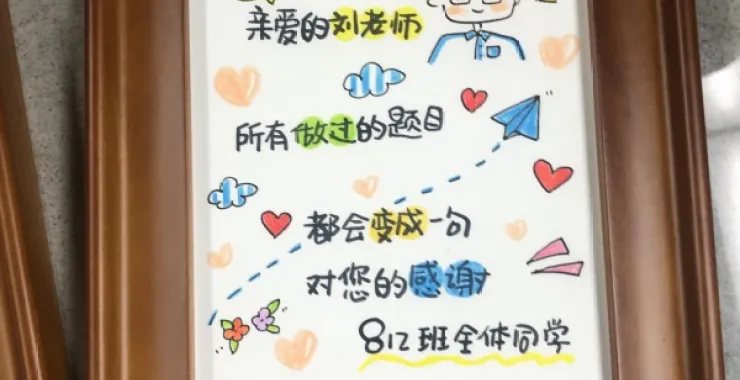 亲爱的刘老师
所有做过的题目
都会变成一句
对您的感谢
812班全体同学